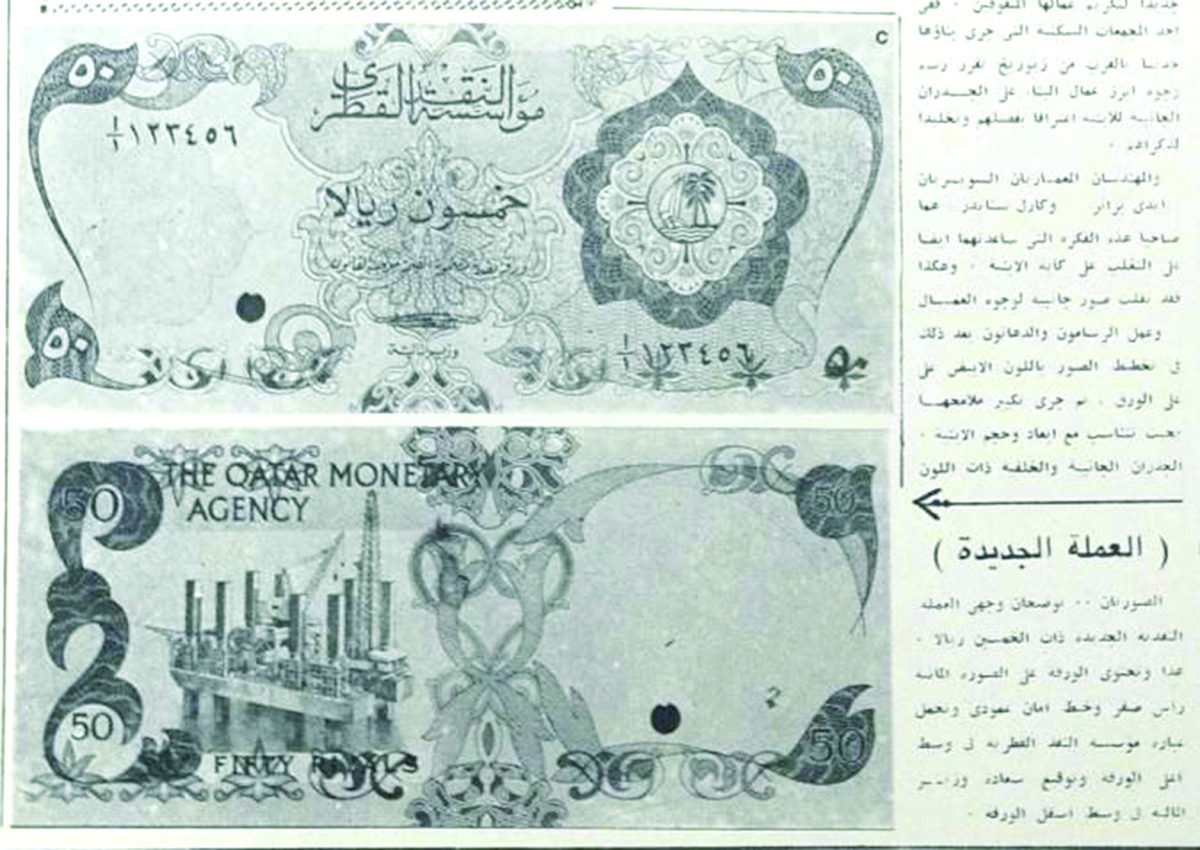 ٥٠
٥٠
مؤسسة النقد القطري
١/١ ١٢٣٤٥٦
خمسون ريالا
وزير المالية
٥٠
١/١ ١٢٣٤٥٦
٥٠
THE QATAR MONETARY
AGENCY
50
50
50
FIFTY RIYALS
50
جديدا لتكريم عمالها المتفوقين ٠ ففي
احد المجمعات السكنية التي جرى بناؤها
حديثا بالقرب من زيوريخ تقرر رسم
وجوه ابرز عمال البناء على الجدران
الجانبية للابنية اعترافا بفضلهم وتخليدا
لذكراهم ٠
والمهندسان المعماريان السويسريان
وكارل عما
صاحبا هذه الفكرة التي ساعدتهما ايضا
على التغلب على كآبة الابنية ٠ وهكذا
فقد نقلت صور جانبية لوجوه العمال
وعمل الرسامون والدهانون بعد ذلك
في تخطيط الصور باللون الابيض على
على الورق ٠ ثم جرى تكبير ملامحها
بحيث تتناسب مع ابعاد وحجم الابنية ٠
الجدران الجانبية والخلفية ذات اللون
( العملة الجديدة )
الصورتان ٠٠ توضحان وجهي العملة
النقدية الجديدة ذات الخمسين ريالا ٠
هذا وتحتوي الورقة على الصورة المائية
راس صقر وخط امان عمودي وتحمل
عبارة مؤسسة النقد القطرية في وسط
اعلى الورقة وتوقيع سعادة وزير
المالية في وسط اسفل الورقة ٠